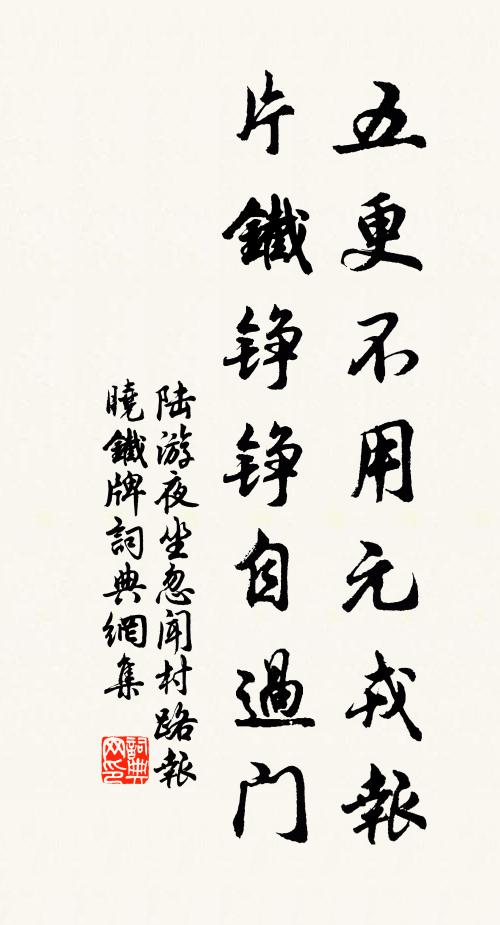 五更不用元戎報
片鐵錚錚自過门
陆游夜坐忽闻村路報
曉鐵牌詞典網集
詞典网印